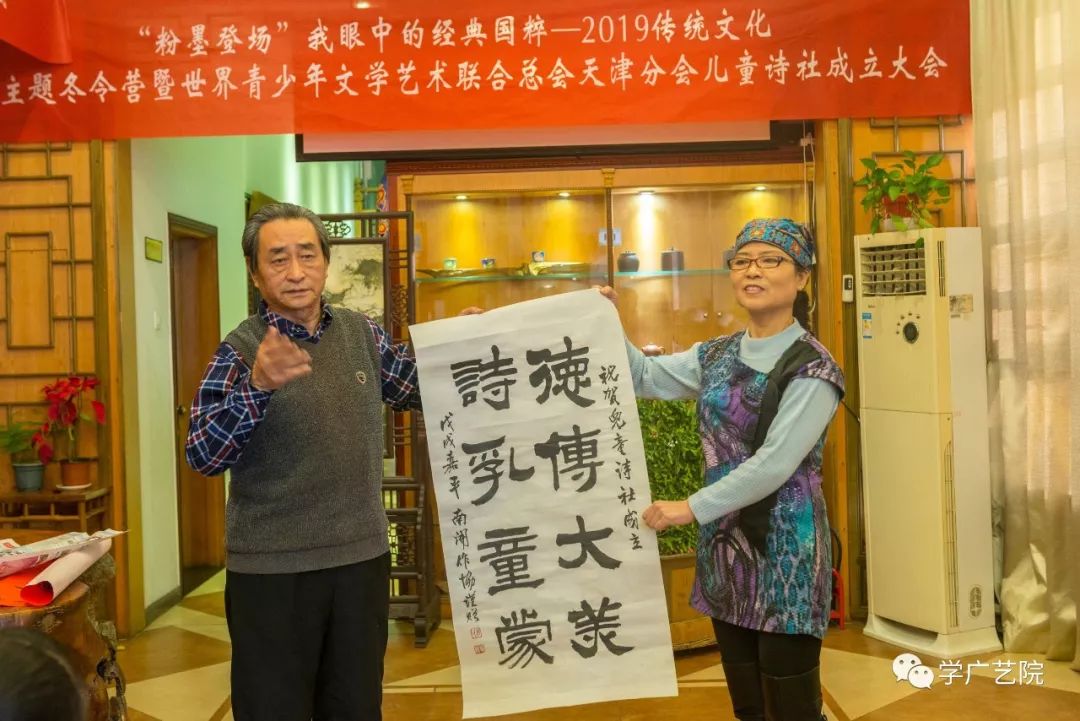 “粉墨登场”我眼中的经典国粹—2019传统文化
主题冬令营暨世界青少年文学艺术联合总会天津分会儿童诗社成立大会
祝贺兒童诗社成立
德傳大美
詩乳童蒙
戊戌嘉平 南開作協謹贈
学广艺院